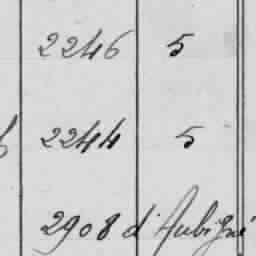 2246 5
2244 5
2908 d'Aubigné